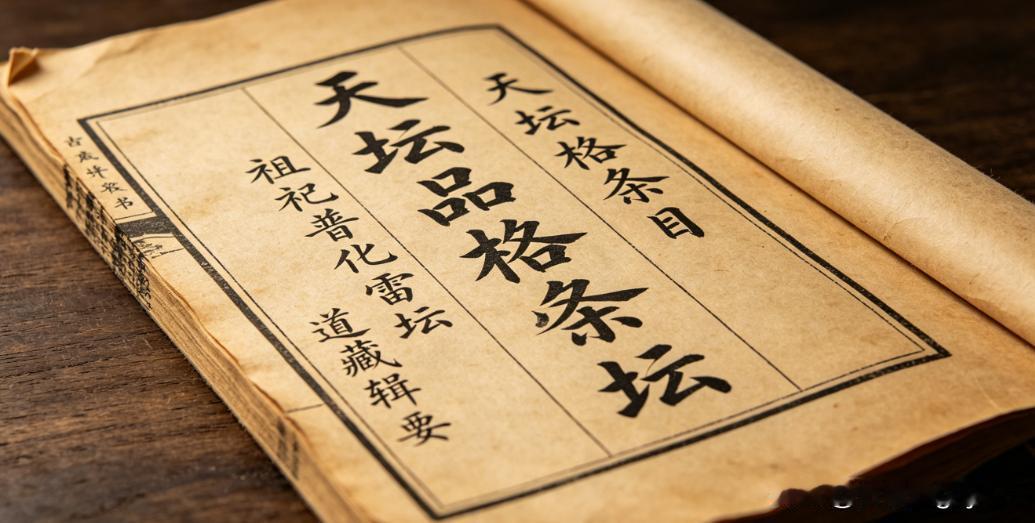 天坛格条目
天坛品格条坛
祖祀普化雷坛
道藏辑要